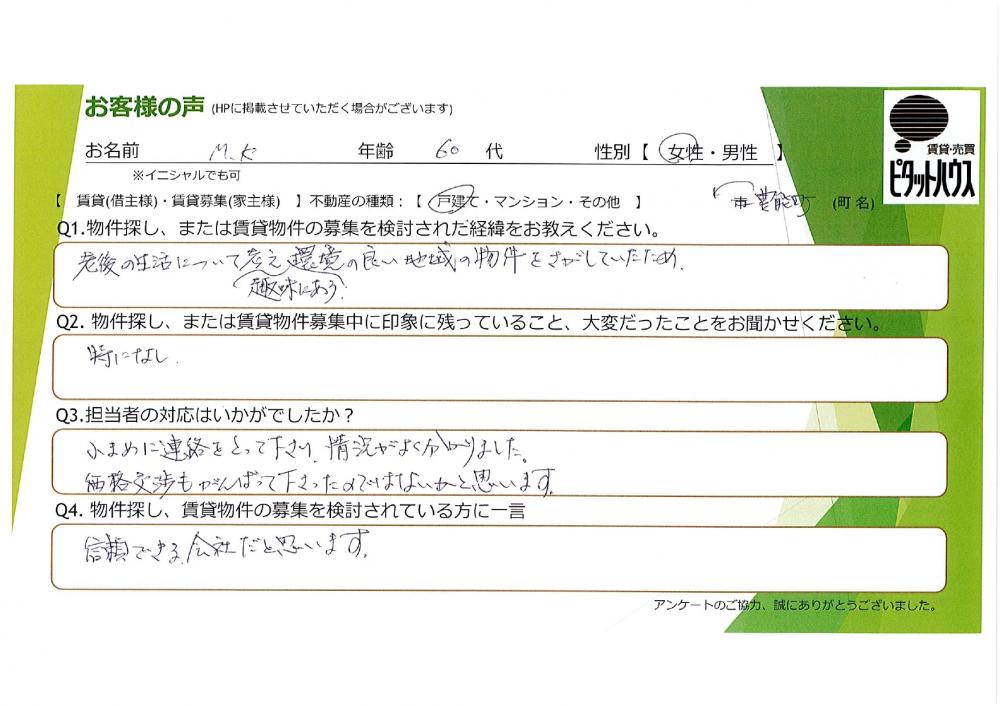 お客様の声 (HPに掲載させていただく場合がございます)
賃貸・売買
ピタットハウス
お名前 M.K 年齢 60 代 性別【 女性・男性 】
※イニシャルでも可
【 賃貸(借主様)・賃貸募集(家主様) 】不動産の種類：【 戸建て・マンション・その他 】 豊能町 (町名)
Q1.物件探し、または賃貸物件の募集を検討された経緯をお教えください。
老後の生活について考え環境の良い地域の物件をさがしていたため。
趣味にあう
Q2. 物件探し、または賃貸物件募集中に印象に残っていること、大変だったことをお聞かせください。
特になし.
Q3.担当者の対応はいかがでしたか？
小まめに連絡をとって下さり、情況がよく分かりました。
価格交渉もがんばって下さったのではないかと思います。
Q4. 物件探し、賃貸物件の募集を検討されている方に一言
信頼できる会社だと思います。
アンケートのご協力、誠にありがとうございました。